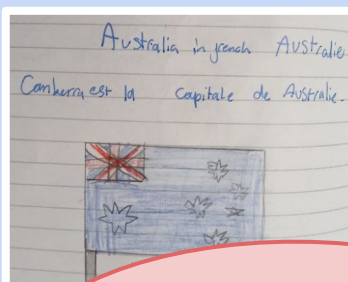 Australia in french Australie
Canberra est la capitale de Australie.